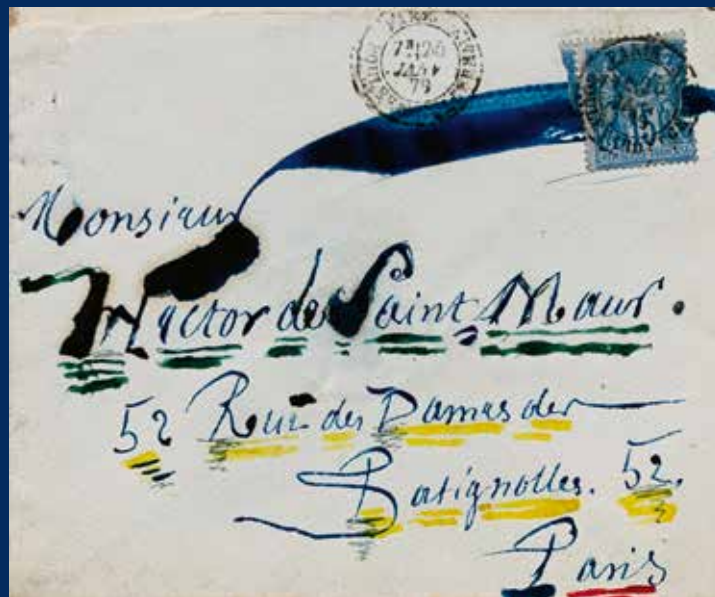 PARIS
JANV
79
15
Monsieur
Hector de Saint-Maur.
52 Rue des Dames des
Batignolles. 52.
Paris